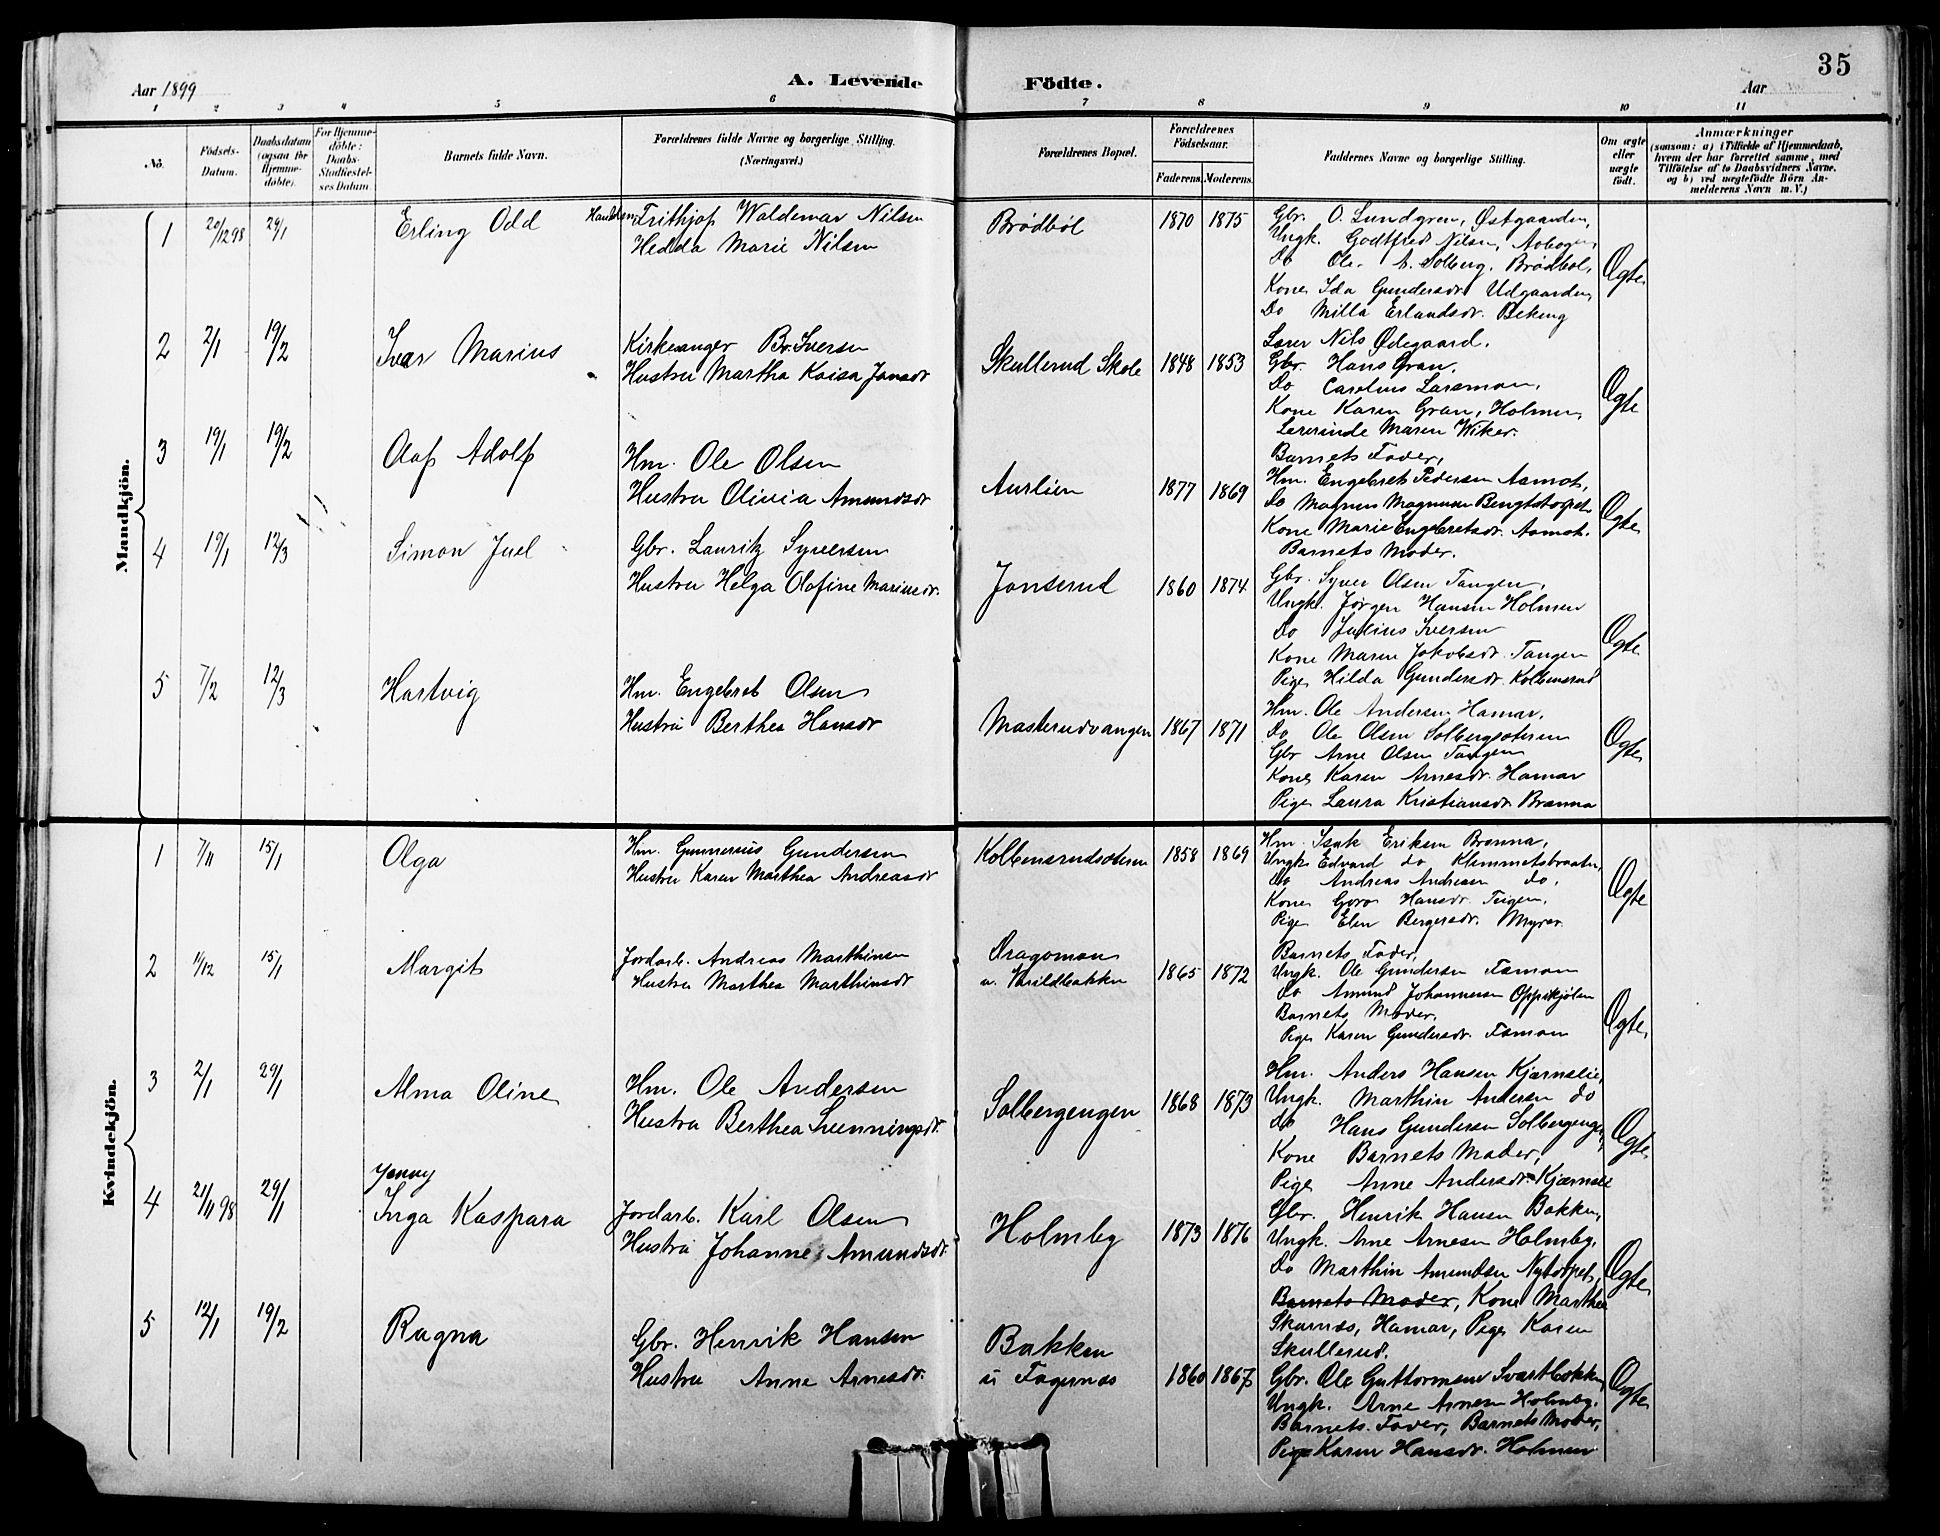 35
Aar 1899
A. Levende Födte.
Aar
1 2 3 4 5 6 7 8 9 10 11
No.
Födsels-Datum.
Daabsdatum (ogsaa for Hjemme-döbte).
For Hjemme-döbte: Daabs-Stadfæstel-ses Datum.
Barnets fulde Navn.
Forældrenes fulde Navne og borgerlige Stilling. (Næringsvei.)
Forældrenes Bopæl.
Forældrenes Födselsaar.
Faderens. Moderens.
Faddernes Navne og borgerlige Stilling.
Om ægte eller uægte födt.
Anmærkninger
(saasom: a) i Tilfælde af Hjemmedaab,
hvem der har forrettet samme, med
Tilföielse af to Daabsvidners Navne,
og b) ved uægtefödte Börn An-
melderens Navn m. V.)
Mandkjön.
1 20/12 98 29/1 Erling Odd
Frithjof Waldemar Nilsen
Hedda Marie Nilsen
Brödböl 1870 1875
Gbr. O. Lundgren, Østgaarden,
Ungk. Godtfred Nilsen, Aabogen,
Do Ole A. Solberg, Brödböl,
Kone Ida Gundersdr Udgaarden,
Do Milla Erlandsdr.
Ægte
2 2/1 19/2 Ivar Marius
Kirkesanger Br. Iversen
Hustru Martha Kaisa Jansdr
Skullerud Skole 1848 1853
Lærer Nils Ødegaard.
Gbr. Hans Gran.
Do Carelius Larsmon,
Kone Karen Gran, Holmen,
Lærerinde Maren Wiker.
Ægte
3 19/1 19/2 Olaf Adolf
Hm. Ole Olsen
Hustru Olivia Amundsdr
Aurlien 1877 1869
Barnets Fader,
Hm. Engebret Pedersen Aamot,
Do Magnus Magnusen Bengtstorpet
Kone Marie Engebretsdr. Aamot.
Barnets Moder.
Ægte
4 19/1 12/3 Simon Juel
Gbr. Lauritz Syversen
Hustru Helga Olafine Mariusdr.
Jonserud 1860 1874
Gbr. Syver Olsen Tangen,
Ungk. Jörgen Hansen Holmen
Do Julius Iversen
Kone Maren Jakobsdr. Tangen
Pige Hilda Gundersdr. Kolbensrud
Ægte
5 7/2 12/3 Hartvig
Hm. Engebret Olsen
Hustru Berthea Hansdr
Masterudvangen 1867 1871
Hm. Ole Andersen Hamar,
Do Ole Olsen Solbergsæteren
Gbr Arne Olsen Tangen
Kone Karen Arnesdr. Hamar
Pige Laura Kristiansdr. Brænna
Ægte
Kvindekjön.
1 7/11 15/1 Olga
Hm. Gunnerius Gundersen
Hustru Karen Marthea Andreasdr
Kolbensrudsæteren 1858 1869
Hm. Isak Eriksen Brænna,
Ungk Edvard do Klemmetsbraaten,
Do Andreas Andresen do,
Kone Goro Hansdr. Teigen,
Pige Elen Bergersdr. Myrer
Ægte
2 11/12 15/1 Margit
Jordarb. Andreas Marthinsen
Hustru Marthea Marthinsdr
Dragomon
u. Varildbakken 1865 1872
Barnets Fader,
Ungk. Ole Gundersen Fæmon
Do Amund Johannesen Oppikjölen
Barnets Moder,
Pige Karen Gundersdr. Fæmon
Ægte
3 2/1 29/1 Alma Oline
Hm. Ole Andersen
Hustru Berthea Svenningsdr.
Solbergengen 1868 1873
Hm. Anders Hansen Kjærnslie,
Ungk. Marthin Andersen do
Do Hans Gundersen Solbergengen,
Kone Barnets Moder,
Pige Anne Andersdr. Kjærnslie
Ægte
Jenny
4 21/11 98 29/1 Inga Kaspara
Jordarb. Karl Olsen
Hustru Johanne Amundsdr.
Holmby 1873 1876
Gbr. Henrik Hansen Bakken,
Ungk. Arne Arnesen Holmby,
Do Marthin Amundsen Nytorpet,
Barnets Moder, Kone Marthea
Skarnæs, Hamar, Pige Karen
Skullerud.
Ægte
5 12/1 19/2 Ragna
Gbr. Henrik Hansen
Hustru Anne Arnesdr.
Bakken
u Fagernæs 1860 1867
Gbr. Ole Guttormsen Svartbækken,
Ungk. Arne Arnesen Holmby.
Barnets Fader, Barnets Moder,
Pige Karen Hansdr. Holmen
Ægte